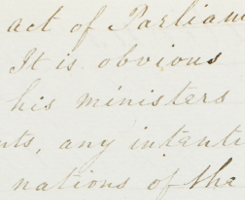 act of Parliam
It is obvious
his ministers
nts, any intenti
nations of the